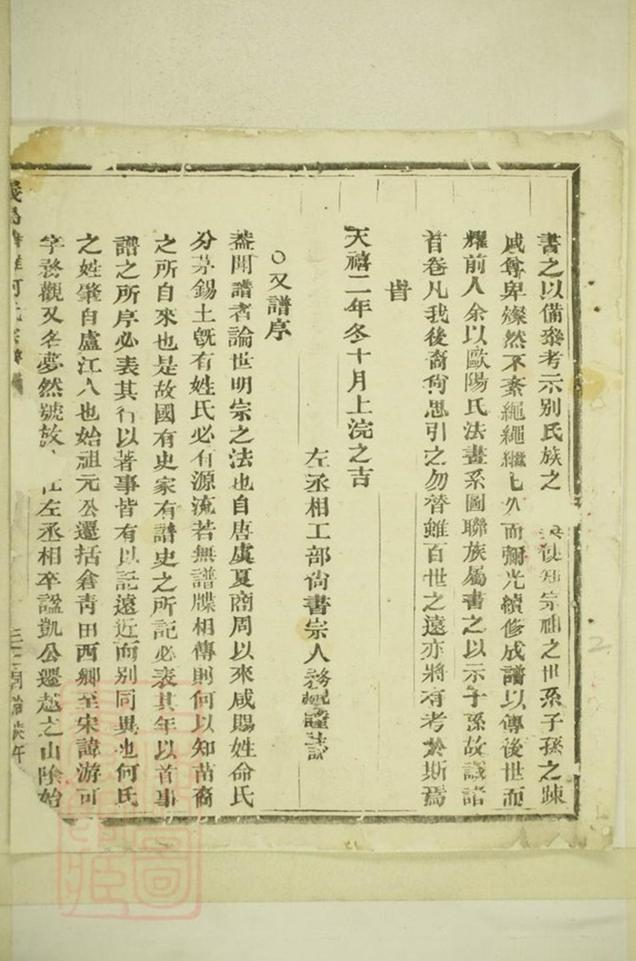 書之以備叅考示別氏族之 使知宗袖之世系子孫之踈
戚尊卑燦然不紊繩繩繼七久而彌光續修成譜以傳後世而
耀前人余以歐陽氏法畫系圖聯族屬書之以示子孫故議諸
首卷凡我後裔尚思引之勿替雖百世之遠亦將有考於斯焉
旹
天禧二年冬十月上浣之吉
左丞相工部尚書宗人務觀謹誌
○又譜序
葢聞譜者論世明宗之法也自唐虞夏商周以來咸賜姓命氏
分茅錫土旣有姓氏必有源流若無譜牒相傳則何以知苗裔
之所自來也是故國有史家有譜史之所記必表其年以首事
譜之所序必表其行以著事皆有以記遠近而別同異也何氏
之姓肇自盧江人也始祖元公遷括倉靑田西鄉至宋諱游可
字務觀又名夢然號放 仕左丞相卒謚凱公遷越之山陰始
何氏宗譜